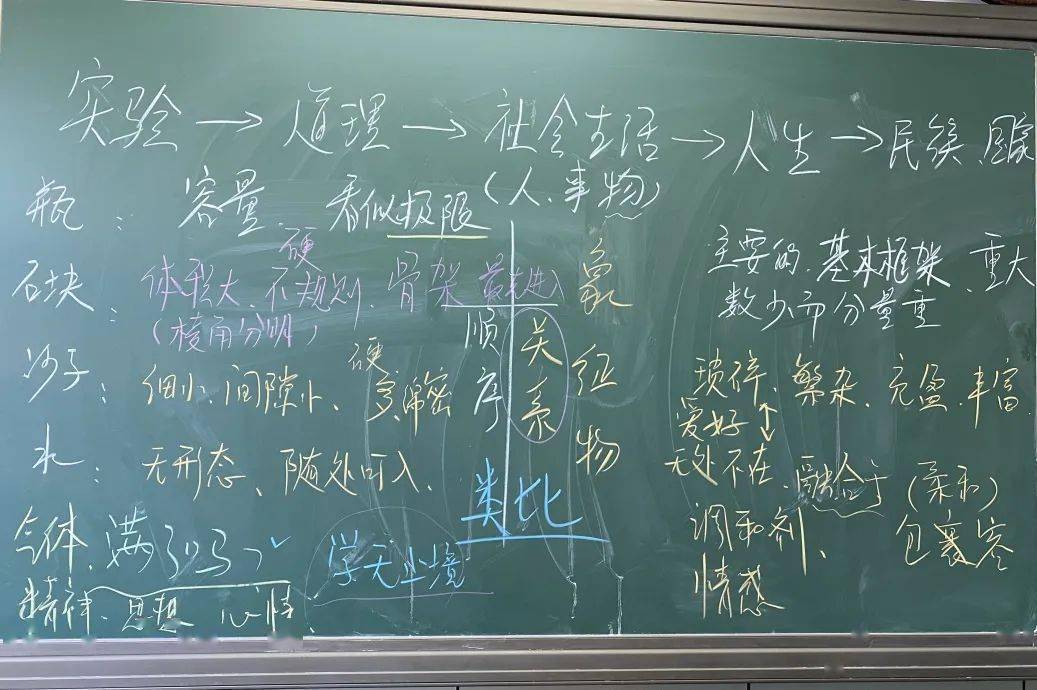 实验→道理→社会生活→人生→民族、国家
瓶：容量、看似极限(人、事物)
石块：体积大、不规则、骨架 最先进入
硬
(棱角分明)
沙子：细小、间隙小、多、
硬
水：无形态、随处可入、
气体、满了吗？
精神、思想 心情、
学无止境
顺序
关系
类比
意
组
物
主要的、基本框架、重大
数少而分量重
琐碎、繁杂、充盈、丰富
爱好
无处不在、融合于(柔和)
调和剂、包裹容
情感